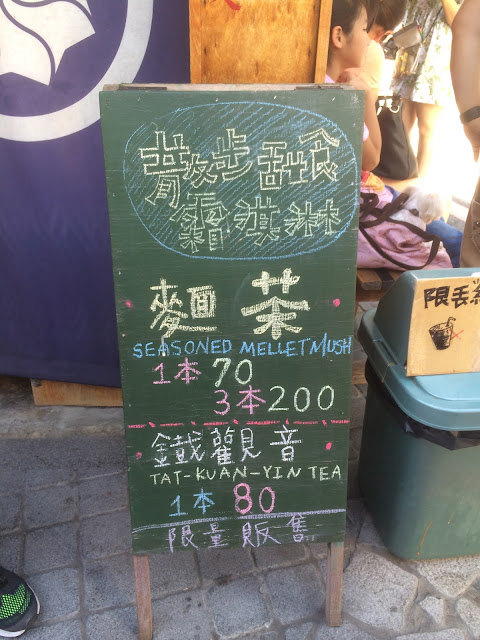 散步甜食
霜淇淋
麵茶
SEASONED MELLET MUSH
1本 70
3本 200
鐵觀音
TAT-KUAN-YIN TEA
1本 80
限量販售
限丟